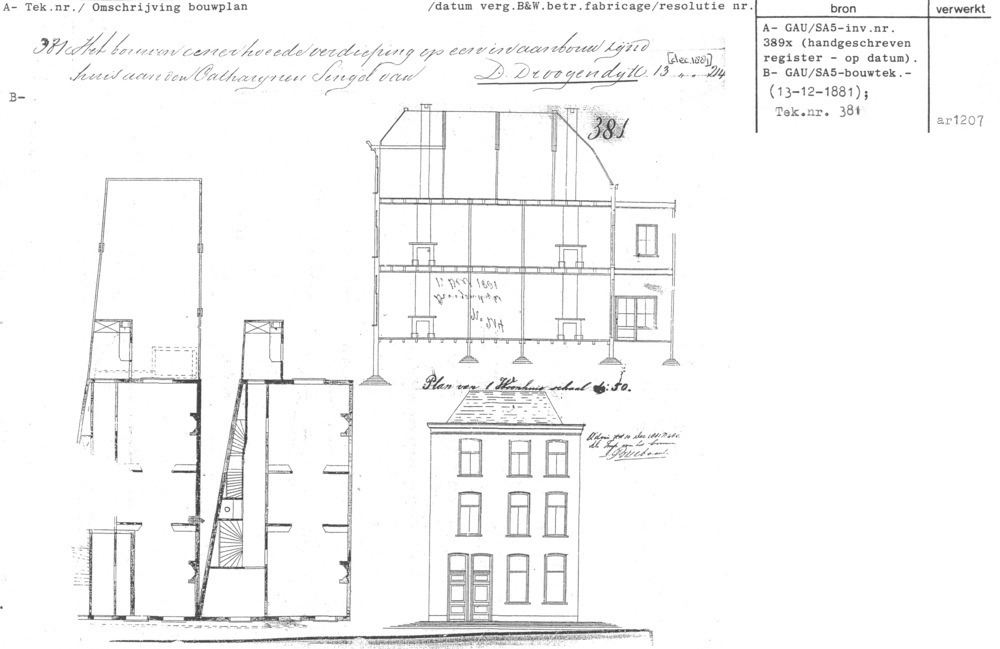 A- Tek.nr./ Omschrijving bouwplan /datum verg.B&W.betr.fabricage/resolutie nr.
bron
verwerkt
381 Het bouwen eener tweede verdieping op een in aanbouw zijnd
[dec.1881]
huis aan den Catharijnen Singel van D. Droogendijk. 13 „ „ 24
A- GAU/SA5-inv.nr.
389x (handgeschreven
register - op datum).
B- GAU/SA5-bouwtek.-
(13-12-1881);
Tek.nr. 381
ar1207
B-
381
Dec 1881
Plan van 1 Woonhuis schaal 1:50.